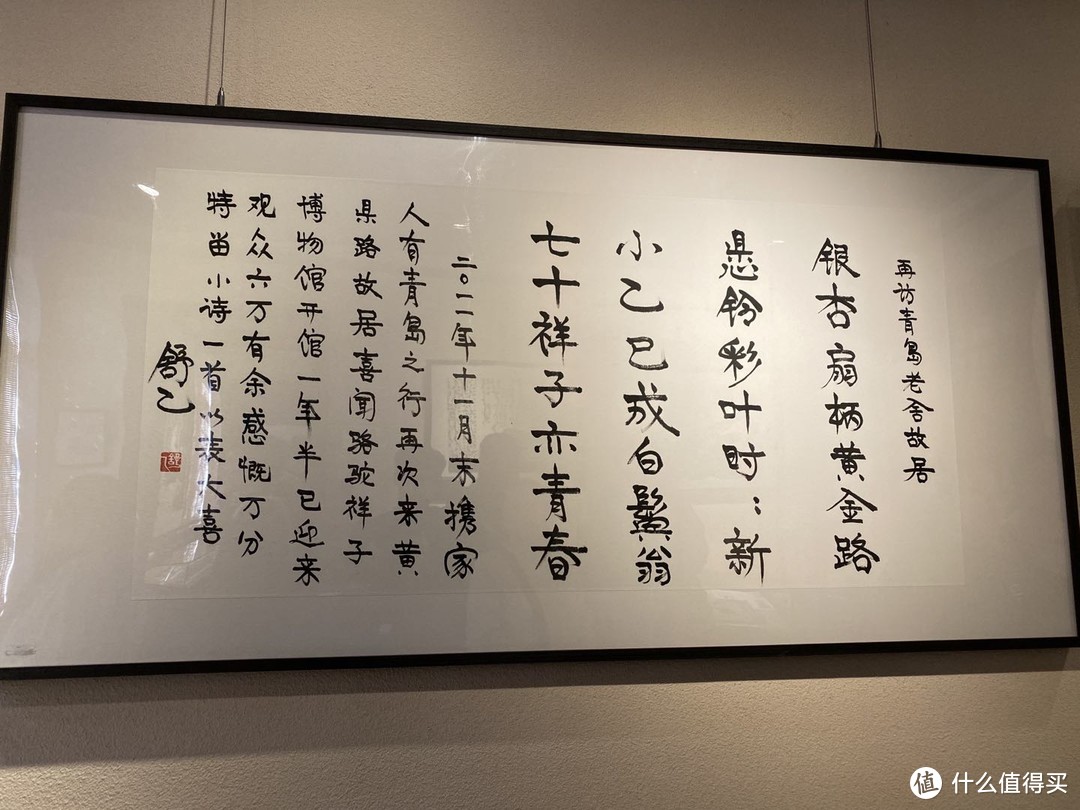 再访青岛老舍故居
银杏扇柄黄金路
悬铃彩叶时：新
小乙已成白鬓翁
七十祥子亦青春
二〇一一年十一月末携家
人有青岛之行再次来黄
县路故居喜闻骆驼祥子
博物馆开馆一年半已迎来
观众六万有余感慨万分
特留小诗一首以表大喜
舒乙
值 什么值得买